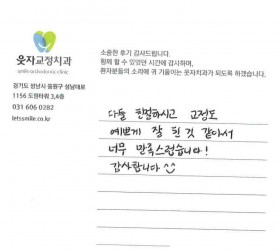 웃자교정치과
smile orthodontic clinic
경기도 성남시 중원구 성남대로
1156 도원타워 3,4층
031 606 0282
letssmile.co.kr
소중한 후기 감사드립니다.
함께 할 수 있었던 시간에 감사하며,
환자분들의 소리에 귀 기울이는 웃자치과가 되도록 하겠습니다.
다들 친절하시고 교정도
예쁘게 잘 된것 같아서
너무 만족스럽습니다!
감사합니다